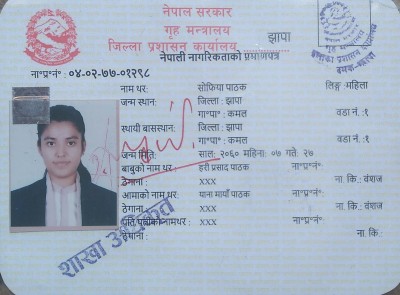 नेपाल सरकार
गृह मन्त्रालय
जिल्ला प्रशासन कार्यालय, झापा
नेपाली नागरिकताको प्रमाणपत्र
ना॰प्र॰नं॰ : ०४-०२-७७-०१२९८
नाम थर: सोफिया पाठक लिङ्ग :महिला
जन्म स्थान: जिल्ला : झापा
गा॰पा॰ : कमल वडा नं. :१
स्थायी बासस्थान: जिल्ला : झापा
गा॰पा॰ : कमल वडा नं. :१
जन्म मिति: साल: २०६० महिना: ०७ गते: २७
बाबुको नाम थर: हरी प्रसाद पाठक ना॰प्र॰नं॰
ठेगाना: xxx ना. कि.: वंशज
आमाको नाम थर: याना मायाँ पाठक ना॰प्र॰नं॰
ठेगाना : xxx ना. कि.: वंशज
पति/पत्नीको नामथर: xxx ना॰प्र॰नं॰:
ठेगाना : ना. कि.:
शाखा अधिकृत